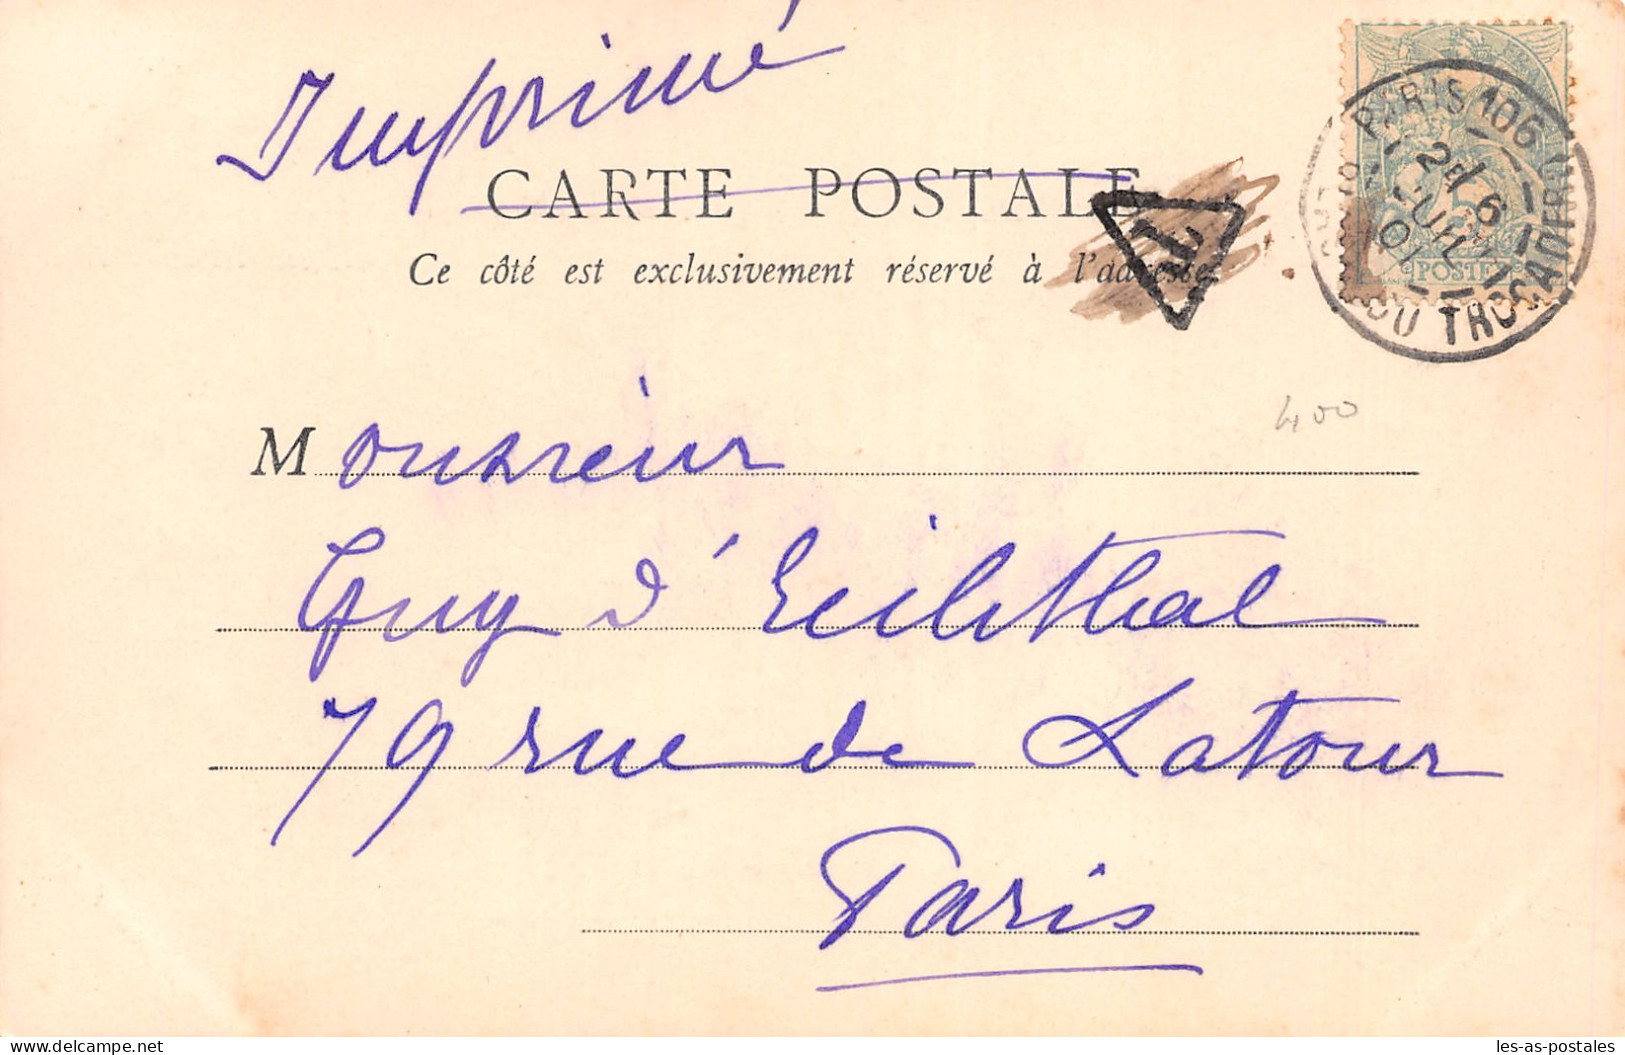 Imprimé
CARTE POSTALE
Ce côté est exclusivement réservé à l'adresse
T
PARIS 106
6
01
DU TROCADERO
POSTE
400
Monsieur
Guy d'Eichthal
79 rue de Latour
Paris
delcampe.net
les-as-postales